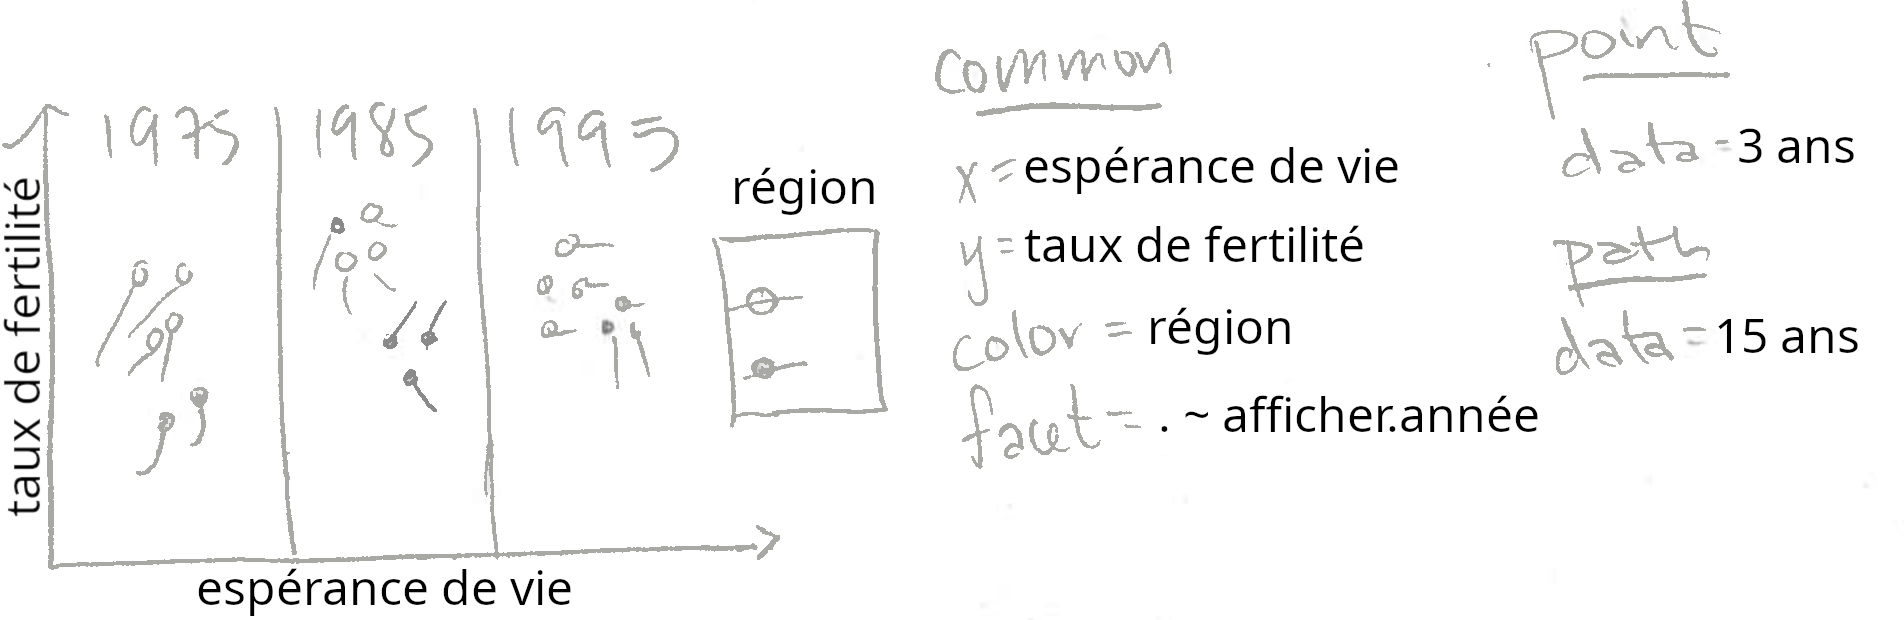 1975 1985 1995
taux de fertilité
espérance de vie
région
common
x = espérance de vie
y = taux de fertilité
color = région
facet = . ~ afficher.année
point
data = 3 ans
path
data = 15 ans